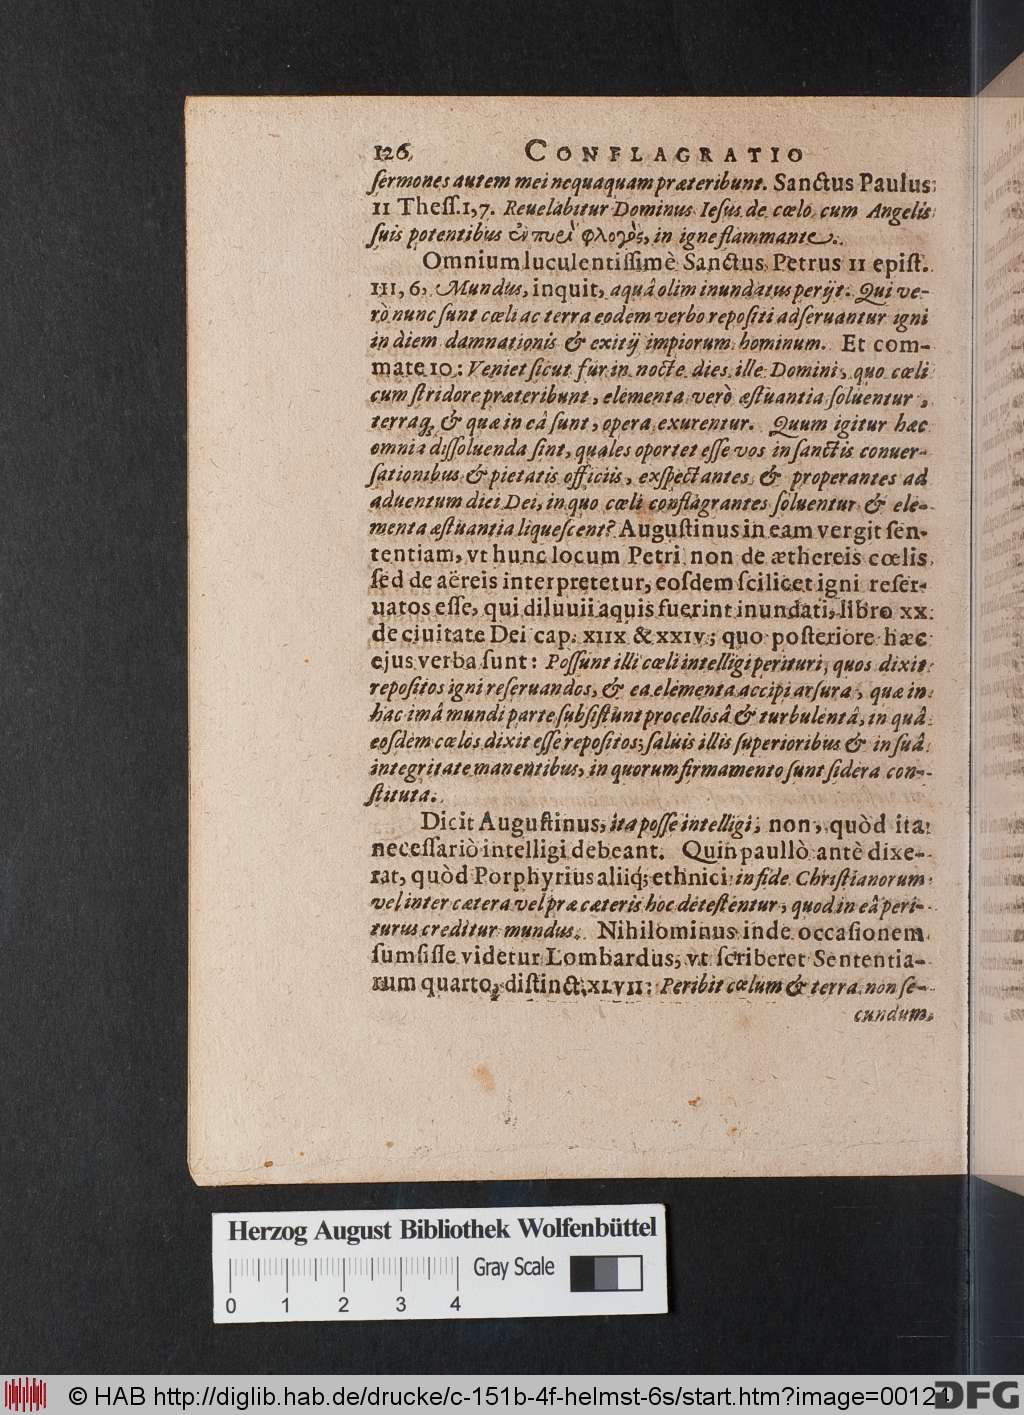 126 CONFLAGRATIO
ſermones autem mei nequaquam præteribunt. Sanctus Paulus
II Theſſ. I, 7. Reuelabitur Dominus Ieſus de cœlo cum Angelis
ſuis potentibus ἐν πυρὶ φλογὸς, in igne flammante.
Omnium luculentiſſimè Sanctus Petrus II epiſt.
III, 6, Mundus, inquit, aquâ olim inundatus perijt. Qui ve-
rò nunc ſunt cœli ac terra eodem verbo repoſiti adſeruantur igni
in diem damnationis & exitij impiorum hominum. Et com-
mate 10: Veniet ſicut fur in nocte dies ille Domini, quo cœli
cum ſtridore præteribunt, elementa verò æſtuantia ſoluentur,
terraq; & quæ in eâ ſunt, opera exurentur. Quum igitur hæc
omnia diſſoluenda ſint, quales oportet eſſe vos in ſanctis conuer-
ſationibus & pietatis officiis, exſpectantes & properantes ad
aduentum diei Dei, in quo cœli conflagrantes ſoluentur & ele-
menta æſtuantia liqueſcent? Auguſtinus in eam vergit ſen-
tentiam, vt hunc locum Petri non de æthereis cœlis
ſed de aëreis interpretetur, eoſdem ſcilicet igni reſer-
uatos eſſe, qui diluuii aquis fuerint inundati, libro XX
de ciuitate Dei cap. XIIX & XXIV; quo poſteriore hæc
ejus verba ſunt: Poſſunt illi cœli intelligi perituri, quos dixit
repoſitos igni reſeruandos, & ea elementa accipi arſura, quæ in
hac imâ mundi parte ſubſiſtunt procellosâ & turbulentâ, in quâ
eoſdem cœlos dixit eſſe repoſitos; ſaluis illis ſuperioribus & in ſuâ
integritate manentibus, in quorum firmamento ſunt ſidera con-
ſtituta.
Dicit Auguſtinus, ita poſſe intelligi, non, quòd ita
neceſſariò intelligi debeant. Quin paullò antè dixe-
rat, quòd Porphyrius aliiq; ethnici in fide Chriſtianorum
vel inter cætera vel præ cæteris hoc deteſtentur, quod in eâ peri-
turus creditur mundus. Nihilominus inde occaſionem
ſumſiſſe videtur Lombardus, vt ſcriberet Sententia-
rum quarto, diſtinct. XLVII: Peribit cœlum & terra non ſe-
cundum
Herzog August Bibliothek Wolfenbüttel
Gray Scale
0 1 2 3 4
© HAB http://diglib.hab.de/drucke/c-151b-4f-helmst-6s/start.htm?image=00124
DFG